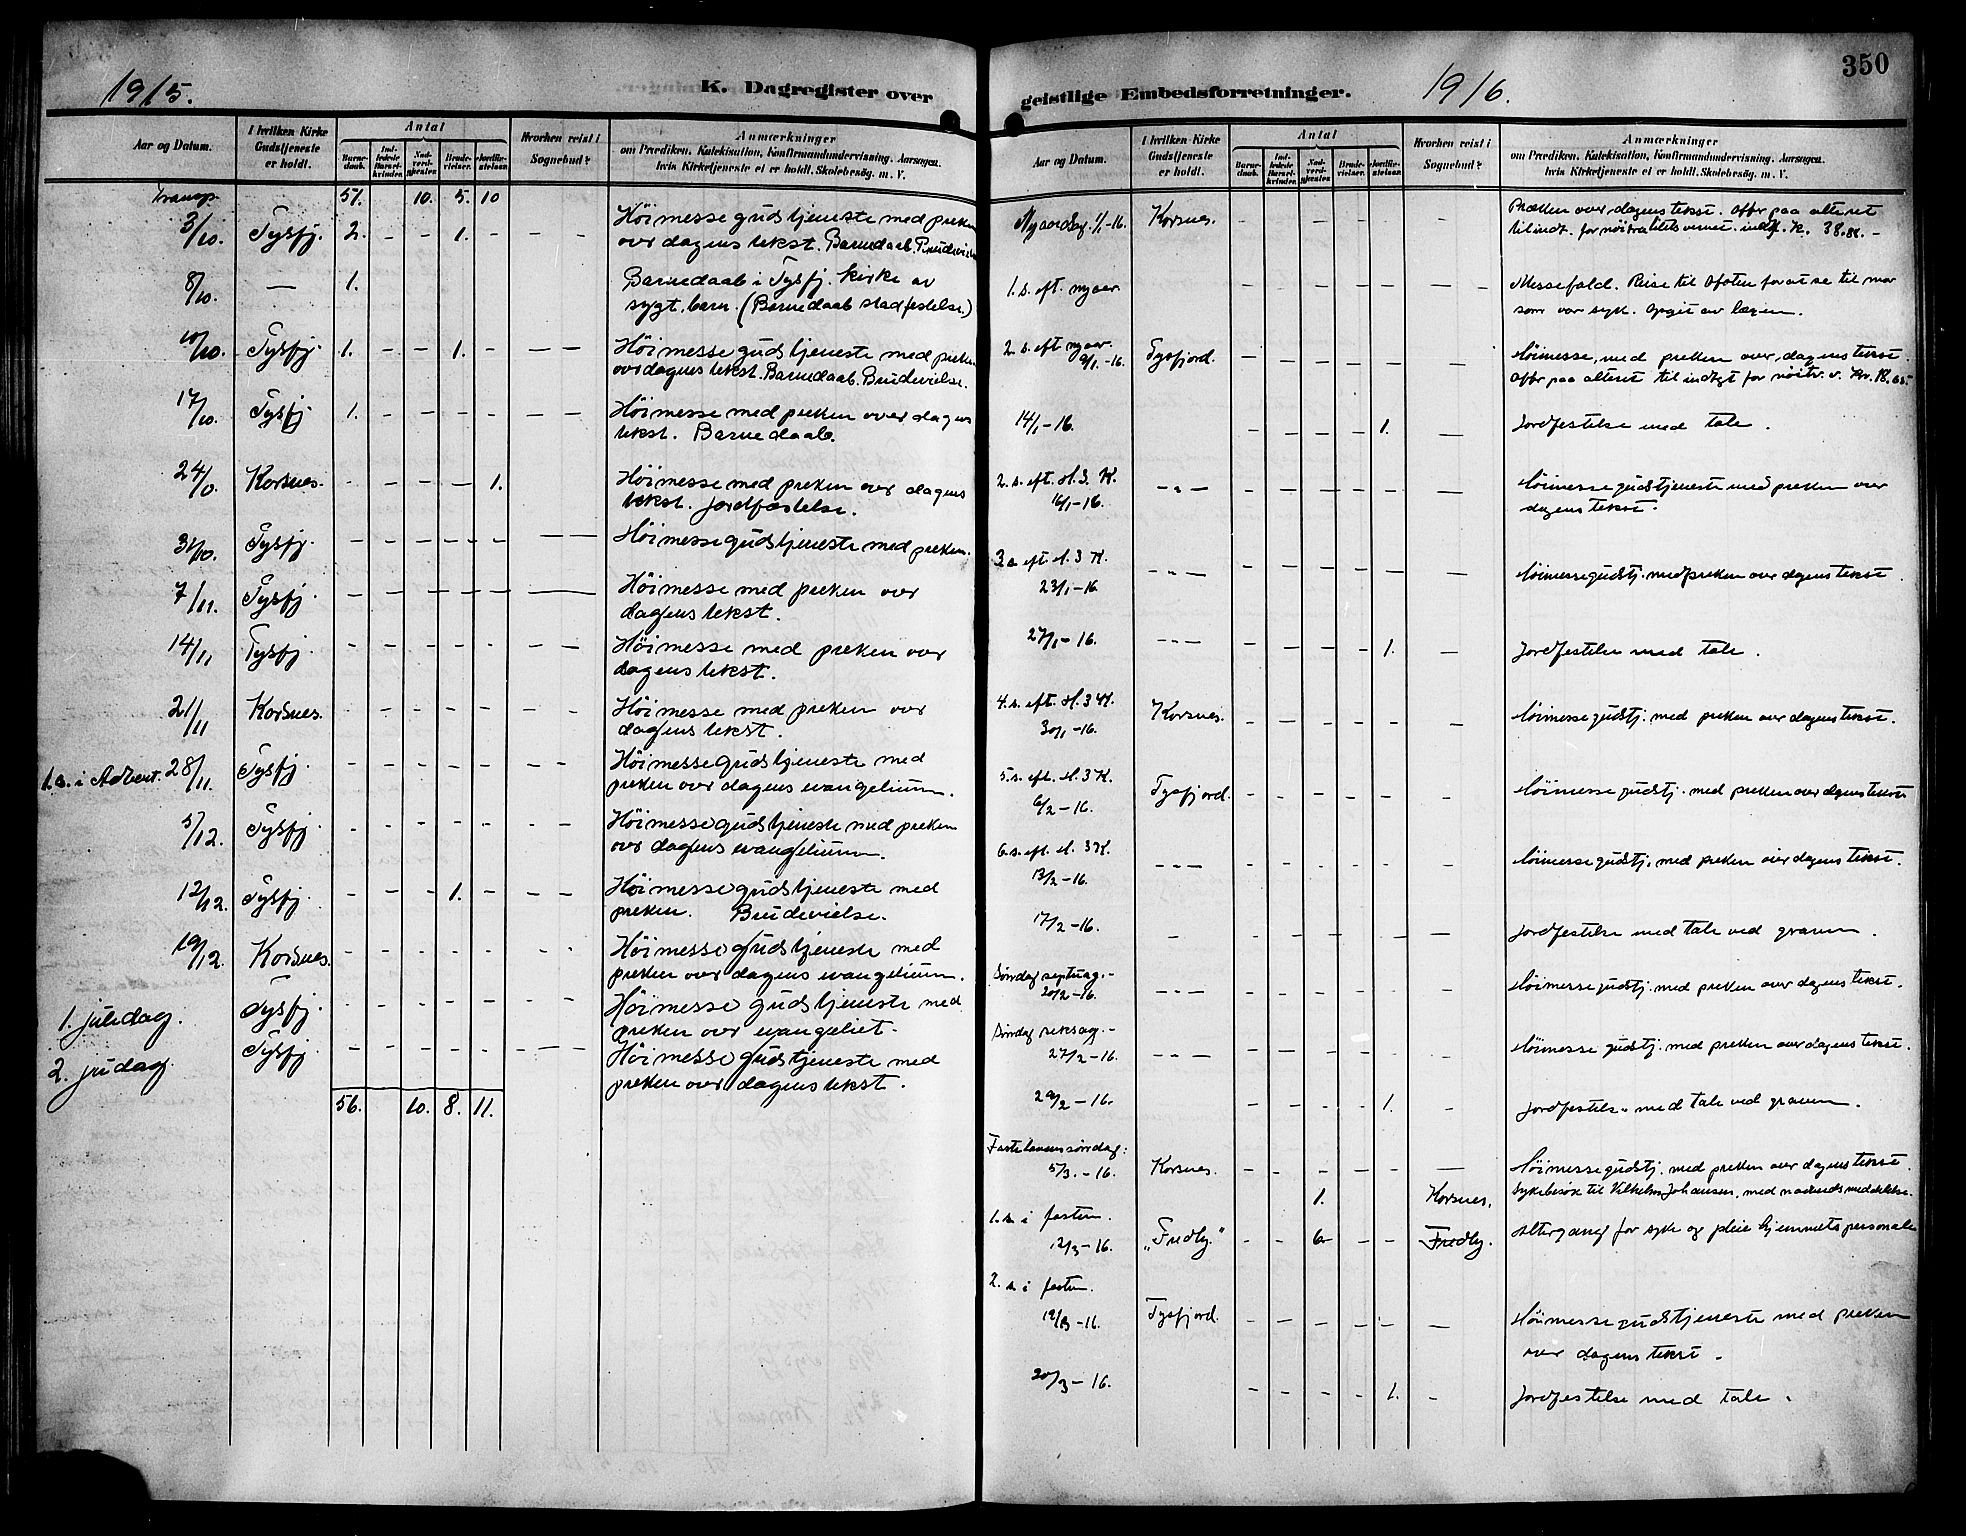 1915.
K. Dagregister over
Aar og Datum.
I hvilken Kirke Gudstjeneste er holdt.
Antal
Barnedaab.
Indledede Barselkvinder.
Nadverdgjester.
Brudevielser.
Jordfæstelser.
Hvorhen reist i Sognebud?
Anmærkninger
om Prædiken, Katekisation, Konfirmandundervisning. Aarsagen.
hvis Kirketjeneste ei er holdt. Skolebesøg. m. V.
Transp. 51. 10. 5. 10
3/10. Tysfj. 2. - - 1. - - - Höimesse gudstjeneste med preken
over dagens tekst. Barnedaab. Brudevielse
8/10. — 1. Barnedaab i Tysfj. Kirke av
sygt. barn. (Barnedaab stadfestelse.)
10/10. Tysfj. 1. - - 1. - — — Höimesse gudstjeneste med preken
over dagens tekst. Barnedaab. Brudevielse.
17/10. Tysfj. 1. - - - - - - Höimesse med preken over dagens
tekst. Barnedaab.
24/10. Korsnes. - - - — 1. Höimesse med preken over dagens
tekst. Jordfæstelse.
31/10. Tysfj. - - - - - — — Höimesse gudstjeneste med preken.
7/11. Tysfj. - - - - - — — Höimesse med preken over
dagens tekst.
14/11 Tysfj. - - - - - - - Höimesse med preken over
dagens tekst.
21/11 Korsnes. - - - - - - - Höimesse med preken over
dagens tekst.
1. s. i Advent. 28/11. Tysfj. - - - - - - - Höimesse gudstjeneste med
preken over dagens evangelium.
5/12. Tysfj. - - - - - - - Höimesse gudstjeneste med preken
over dagens evangelium.
12/12. Tysfj. - - - 1. - - - Höimesse gudstjeneste med
preken. Brudevielse.
19/12. Korsnes. - - - - - - - Höimesse gudstjeneste med
preken over dagens evangelium.
1. juledag. Tysfj. - - - - - - - Höimesse gudstjeneste med
preken over evangeliet.
2. judag. Tysfj. - - - - - - — Höimesse gudstjeneste med
preken over dagens tekst.
56. 10. 8. 11.
geistlige Embedsforretninger.
1916.
350
Aar og Datum.
I hvilken Kirke Gudstjeneste er holdt.
Antal
Barnedaab.
Indledede Barselkvinder.
Nadverdgjester.
Brudevielser.
Jordfæstelser.
Hvorhen reist i Sognebud?
Anmærkninger
om Prædiken, Katekisation, Konfirmandundervisning. Aarsagen.
hvis Kirketjeneste ei er holdt. Skolebesøg. m. V.
Nyaarsdag 1/1-16. Korsnes. - - - - - - Præken over dagens tekst. Offer paa alteret
til indt. for nöitralitetsvernet. indk. K. 38.81. -
1. s. eft. nyaar - - - - - - - Messefald. Reise til Ofoten for at se til mor
som var syk. Opgit av lægen.
2. s. eft nyaar 9/1.-16. Tysfjord. - - - - - - Höimesse, med preken over dagens tekst.
Offer paa alteret til indtgt for nöitr. v. Kr. 18.65
14/1-16. - - - - 1. — Jordfestelse med tale.
2. s. eft. H. 3. K. 16/1-16. — " — - - - - - — Höimesse gudstjeneste med preken over
dagens tekst.
3 s. eft. H. 3 K. 23/1-16 - " - - - - - - — Höimesse gudstj. med preken over dagens tekst
27/1-16. - - - - - - - 1. — Jordfestelse med tale.
4. s. eft. H. 3 K. 30/1-16. Korsnes. - - - - - - Höimesse gudstj. med preken over dagens tekst.
5. s. eft. H. 3 K. 6/2-16. Tysfjord. - - - - - - Höimesse gudstj. med preken over dagens tekst
6. s. eft. H. 3 K. 13/2-16. - " - - - - - - - Höimesse gudstj. med preken over dagens tekst.
17/2-16. - - - - - - — Jordfestelse med tale ved graven.
Söndag septuag.- 20/2-16. - " - - - - - - - Höimesse gudstj. med preken over dagens tekst.
Söndag seksag.- 27/2-16. - " - - - - - - - Höimesse gudstj. med preken over dagens tekst.
29/2-16. - - - - 1. - Jordfestelse med tale ved graven.
Fastelavenssöndag: 5/3.-16. Korsnes. - - - - - — Höimesse gudstj. med preken over dagens tekst.
1. Korsnes. Sykebesök til Vilhelm Johansen, med nadverds meddelelse.
1. s. i fasten. 12/3-16. "Fredly." - - 6 - - Fredly. Altergang for syke og pleie hjemmets personale
2. s. i fasten. 19/3-16. Tysfjord. - - - - - — Höimesse gudstjeneste med preken
over dagens tekst.
20/3-16. - - - - 1. - Jordfestelse med tale.